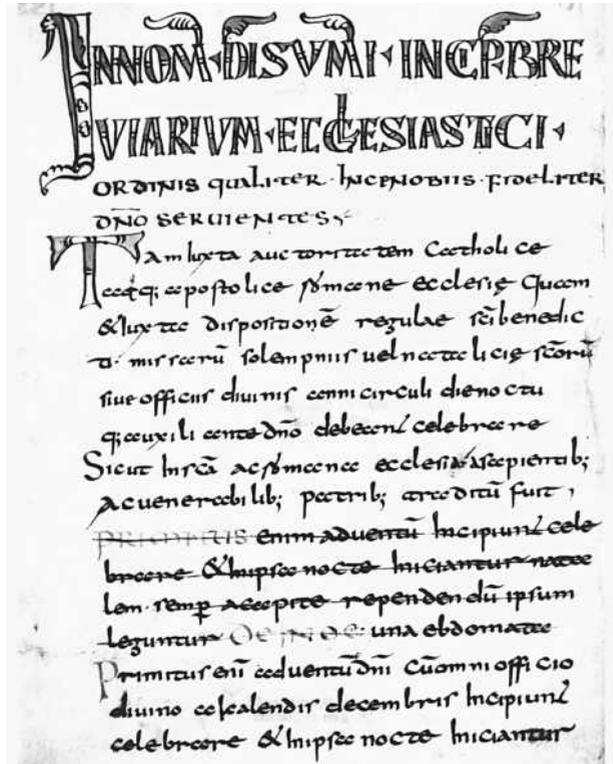 INNOM̄·DĪSVM̄I·INCP̄·BRE
VIARIVM·ECCLESIASTICI·
ORDINIS qualiter·INCENOBIIS·FIdeliter
DN̄O SERUIENTES
Tam Iuxta auctoritatem Catholice
atq; apostolice romane ecclesię Quam
&Iuxta dispositionē regulae sc̄ibenedic
ti· missarū solempniis uelnatalicię sc̄orū
siue officiis diuinis annicirculi dienoctu
q;auxiliante dn̄o debeant celebrare
Sicut Insc̄a acromana ecclesia asapientib;
Acuenerabilib; patrib; traditū fuit,
PRIMITUS enim aduentū Incipiunt cele
brare &Inipsa nocte Iniciantur nata
lem·semp̄ accepite rependendū ipsum
leguntur una ebdomata
Primitus enī aduentū dn̄i cūomni officio
diuino ac kalendis decembris Incipiunt
celebrare &Inipsa nocte Iniciantur